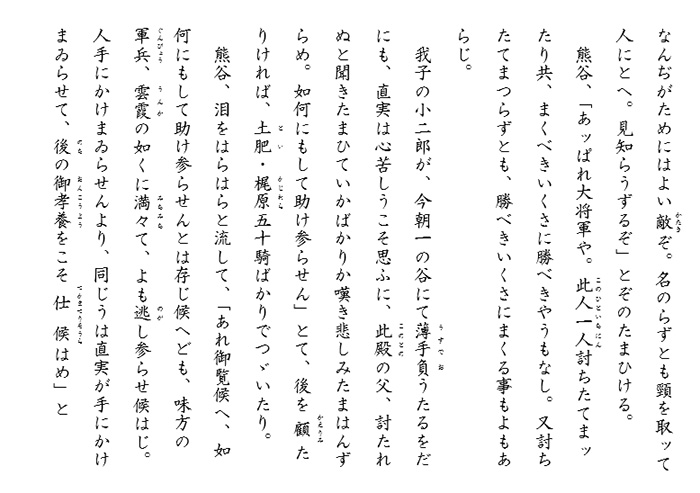 なんぢがためにはよい敵ぞ。名のらずとも頸を取ッて
人にとへ。見知らうずるぞ」とぞのたまひける。
熊谷、「あッぱれ大将軍や。此人一人討ちたてまッ
たり共、まくべきいくさに勝べきやうもなし。又討ち
たてまつらずとも、勝べきいくさにまくる事もよもあ
らじ。
我子の小二郎が、今朝一の谷にて薄手負うたるをだ
にも、直実は心苦しうこそ思ふに、此殿の父、討たれ
ぬと聞きたまひていかばかりか嘆き悲しみたまはんず
らめ。如何にもして助け参らせん」とて、後を顧た
りければ、土肥・梶原五十騎ばかりでつゞいたり。
熊谷、泪をはらはらと流して、「あれ御覧候へ、如
何にもして助け参らせんとは存じ候へども、味方の
軍兵、雲霞の如くに満々て、よも逃し参らせ候はじ。
人手にかけまゐらせんより、同じうは直実が手にかけ
まゐらせて、後の御孝養をこそ仕候はめ」と